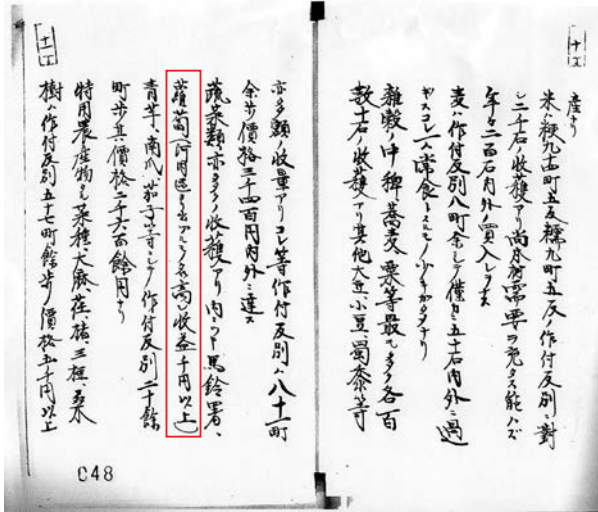 産ナリ
米ハ粳九十町五反糯九町五反ノ作付反別ニ對
シ二千石ノ收穫アリ尚本村需要ヲ充タス能ハズ
年々二百石内外ノ買入レヲナス
麦ハ作付反別八町余ニシテ僅カニ五十石内外ニ過
ギスコレ一人常食トスルモノ少キカタメナリ
雜穀ノ中稗、蕎麦、粟等最モ多ク各百
数十石ノ收穫アリ其他大豆、小豆、蜀黍等
亦多額ノ收量アリコレ等作付反別ハ八十一町
余歩價格三千四百円内外ニ達ス
蔬菜類亦多クノ收穫アリ内ニツキ馬鈴署、
蘿蔔(河内
名高ク收益千円以上)
青芋、南瓜、茄子等ニシテ作付反別二十餘
町歩其價格二千六百餘円ナリ
特用農産物ハ菜種、大麻、荏、楮、三椏、桑
樹ハ作付反別五十七町餘歩價格五千円以上
048